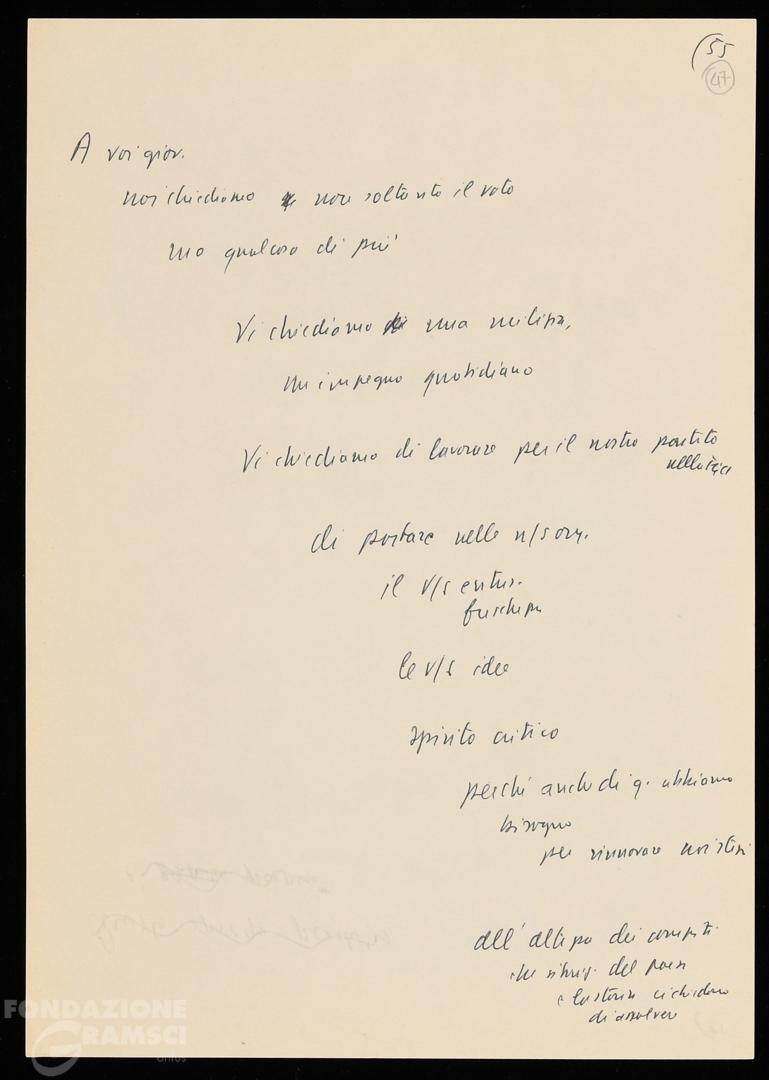 55
47
A voi giov.
noi chiediamo non soltanto il voto
ma qualcosa di più
Vi chiediamo una milizia,
un impegno quotidiano
Vi chiediamo di lavorare per il nostro partito
nella
di portare nelle n/s org.
il v/s entus.
freschezza
le v/s idee
spirito critico
perché anche di q. abbiamo
bisogno
per rinnovare noi stessi
all'altezza dei compiti
che del paese
e la storia ci chiedono
di assolvere
FONDAZIONE
GRAMSCI
onlus